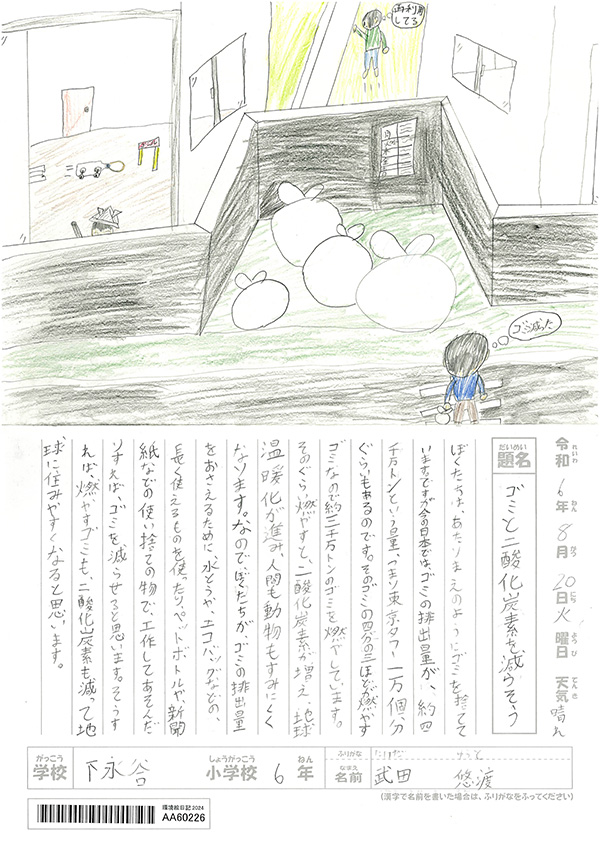 再利用
してる
ゴミ減った
令和6年8月20日火曜日 天気 晴れ
れいわ ねん がつ にち ようび てんき
だいめい
題名
ゴミと二酸化炭素を減らそう
ぼくたちは、あたりまえのようにゴミを捨てて
いますですが今の日本では、ゴミの排出量が、約四
千万トンという量、つまり東京タワー一万個分
ぐらいもあるのです。そのゴミの四分の三ほどが燃やす
ゴミなので約三千万トンのゴミを燃やしています。
そのぐらい燃やすと、二酸化炭素が増え、地球
温暖化が進み、人間も動物もすみにくく
なります。なのでぼくたちが、ゴミの排出量
をおさえるために、水とうや、エコバッグなどの、
長く使えるものを使ったりペットボトルや、新聞
紙などの使い捨ての物で、工作してあそんだ
りすれば、ゴミを減らせると思います。そうす
れば燃やすゴミも、二酸化炭素も減って地
球に住みやすくなると思います。
がっこう しょうがっこう ねん ふりがな たけだ
学校 下永谷 小学校 6年 なまえ 名前 武田 悠渡
(漢字で名前を書いた場合は、ふりがなをふってください)
環境絵日記2024
AA60226